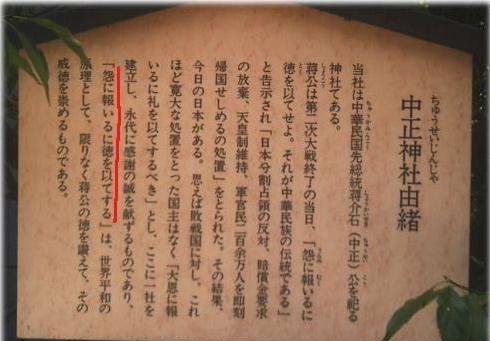 ちゅうせいじんじゃ
中正神社由緒
ちゅうかみんこく しょうかいせき ちゅうせい こう
当社は中華民国先総統蒋介石(中正)公を祀る
神社である。
しょうこう うらみ
蒋公は第二次大戦終了の当日、「怨に報いるに
とく
徳を以てせよ。それが中華民族の伝統である」
と告示され「日本分割占領の反対、賠償金要求
の放棄、天皇制維持、軍官民二百余万人を即刻
帰国せしめるの処置」をとられた。その結果、
今日の日本がある。思えば敗戦国に対し、これ
ほど寛大な処置をとった国主はなく「大恩に報
いるに礼を以てするべき」とし、ここに一社を
建立し、永代に感謝の誠を献ずるものであり、
「怨に報いるに徳を以てする」は、世界平和の
原理として、限りなく蒋公の徳を讃えて、その
威徳を崇めるものである。